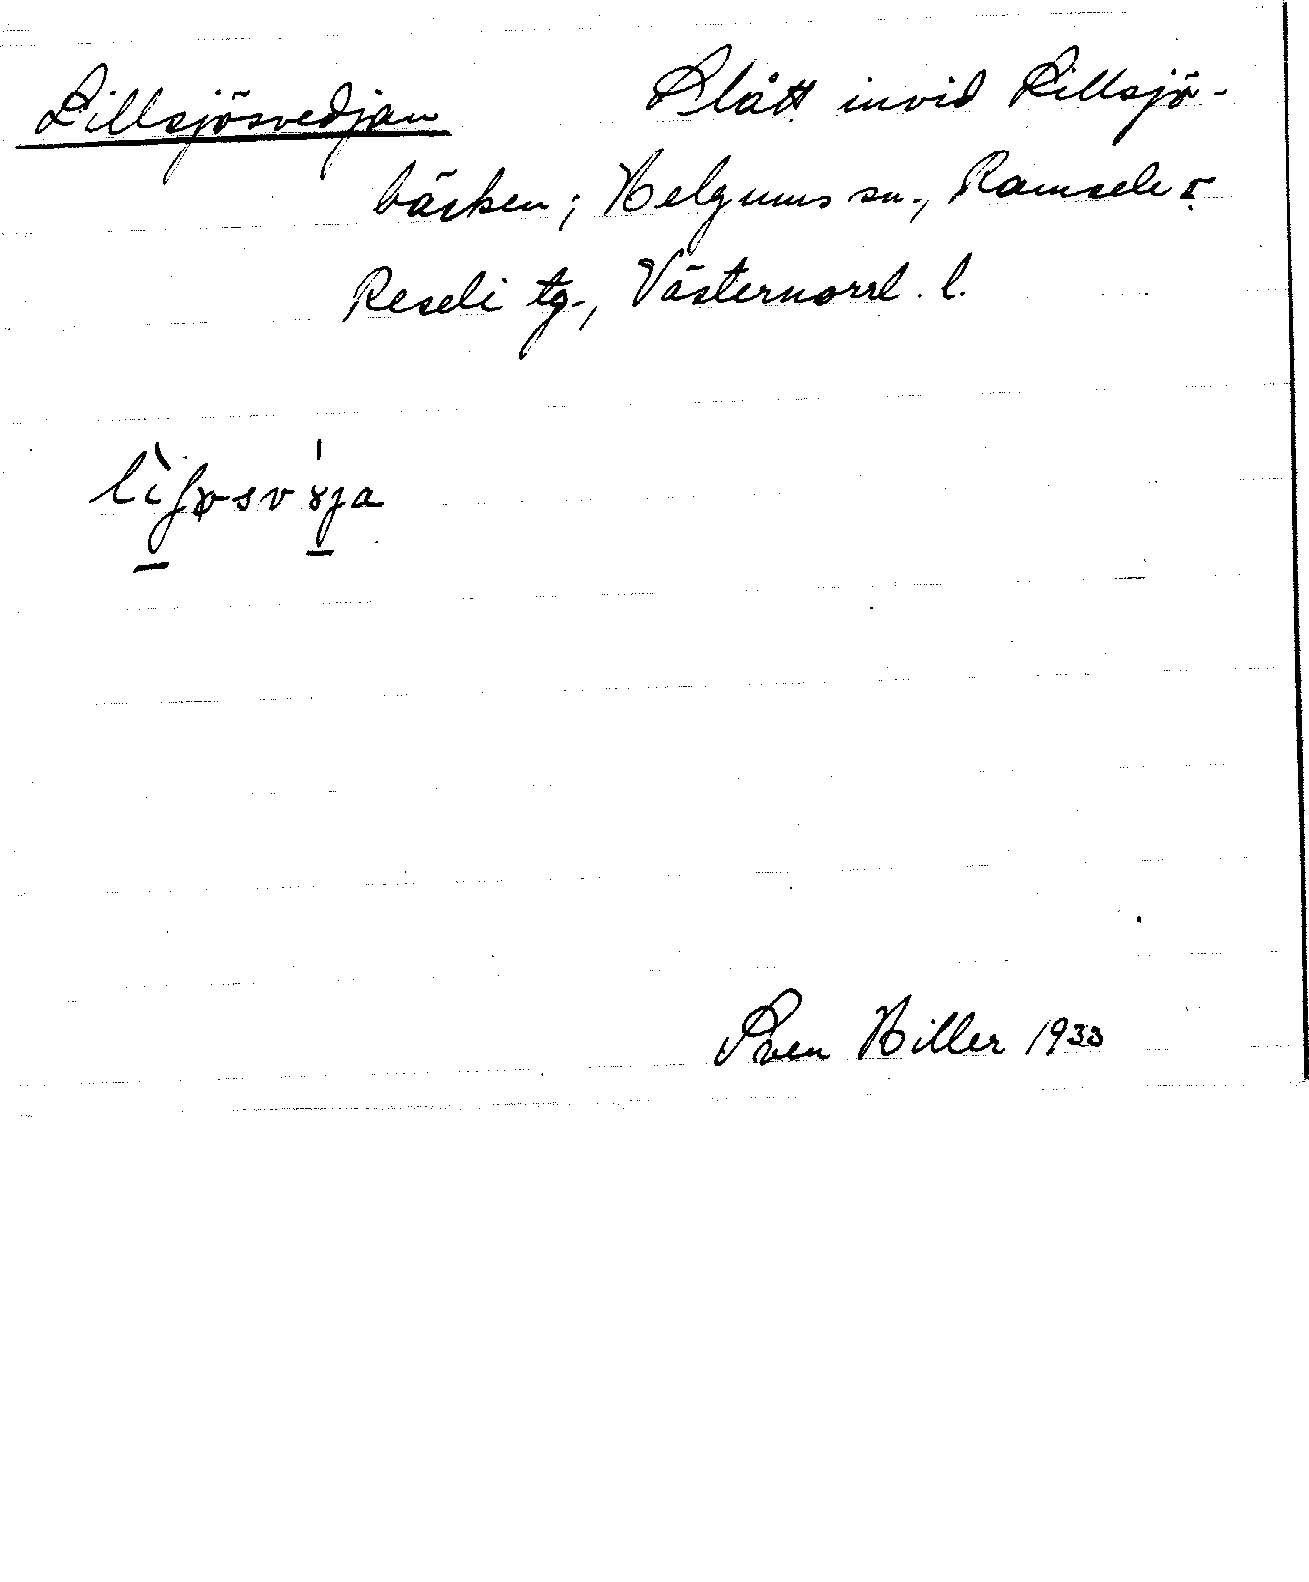 Lillsjösvedjan Slått invid Lillsjö-
bäcken; Helgums sn., Ramsele o.
Resele tg., Västernorrl. l.
Sven Hiller 1933